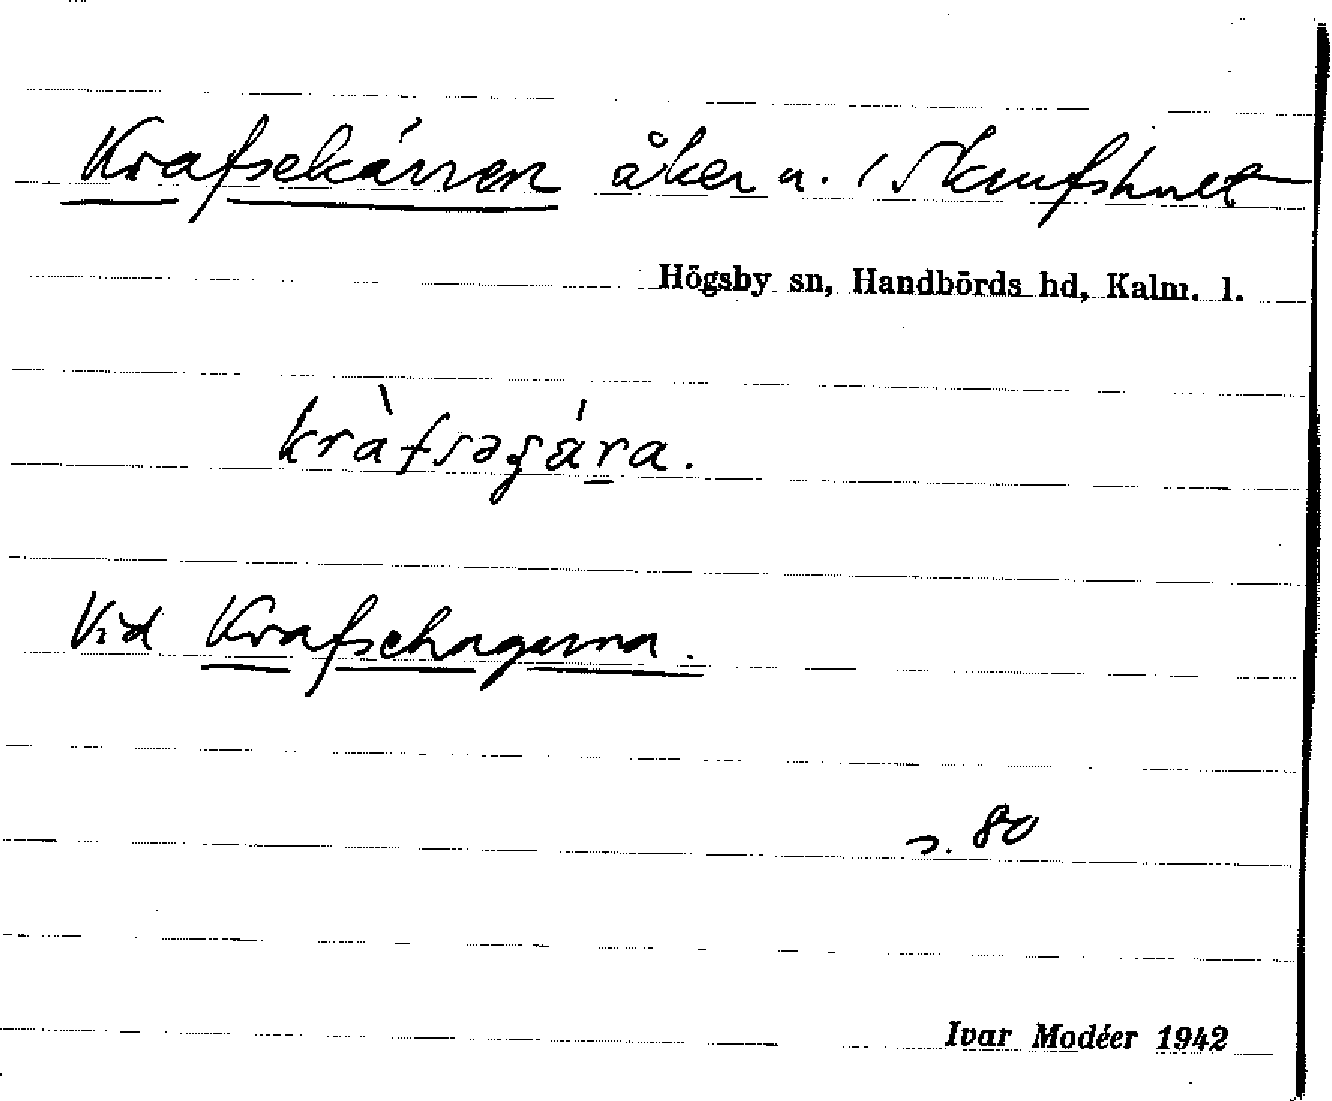 Krafsekärren åker u. Skrufshult
Högsby sn, Handbörds hd, Kalm. l.
kràfsəɟára.
Vid Krafsehagarna.
s. 80
Ivar Modéer 1942